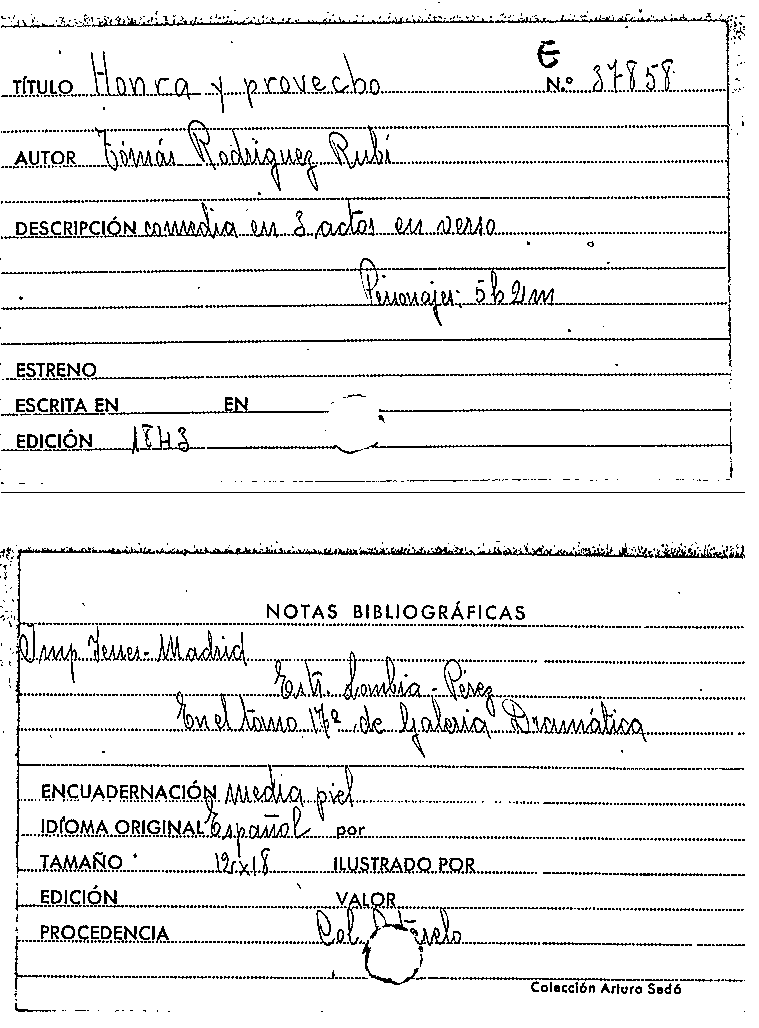 E
TÍTULO Honra y provecho N.º 37858
AUTOR Tomás Rodriguez Rubí
DESCRIPCIÓN comedia en 3 actos en verso
Personajes: 5h 2m
ESTRENO
ESCRITA EN EN
EDICIÓN 1843
NOTAS BIBLIOGRÁFICAS
Imp. - Madrid
Estr. Lombia - Pérez
En el tomo 17º de Galeria Dramática
ENCUADERNACIÓN media piel
IDIOMA ORIGINAL Español por
TAMAÑO 12x18 ILUSTRADO POR
EDICIÓN VALOR
PROCEDENCIA Col.
Colección Arturo Sedó